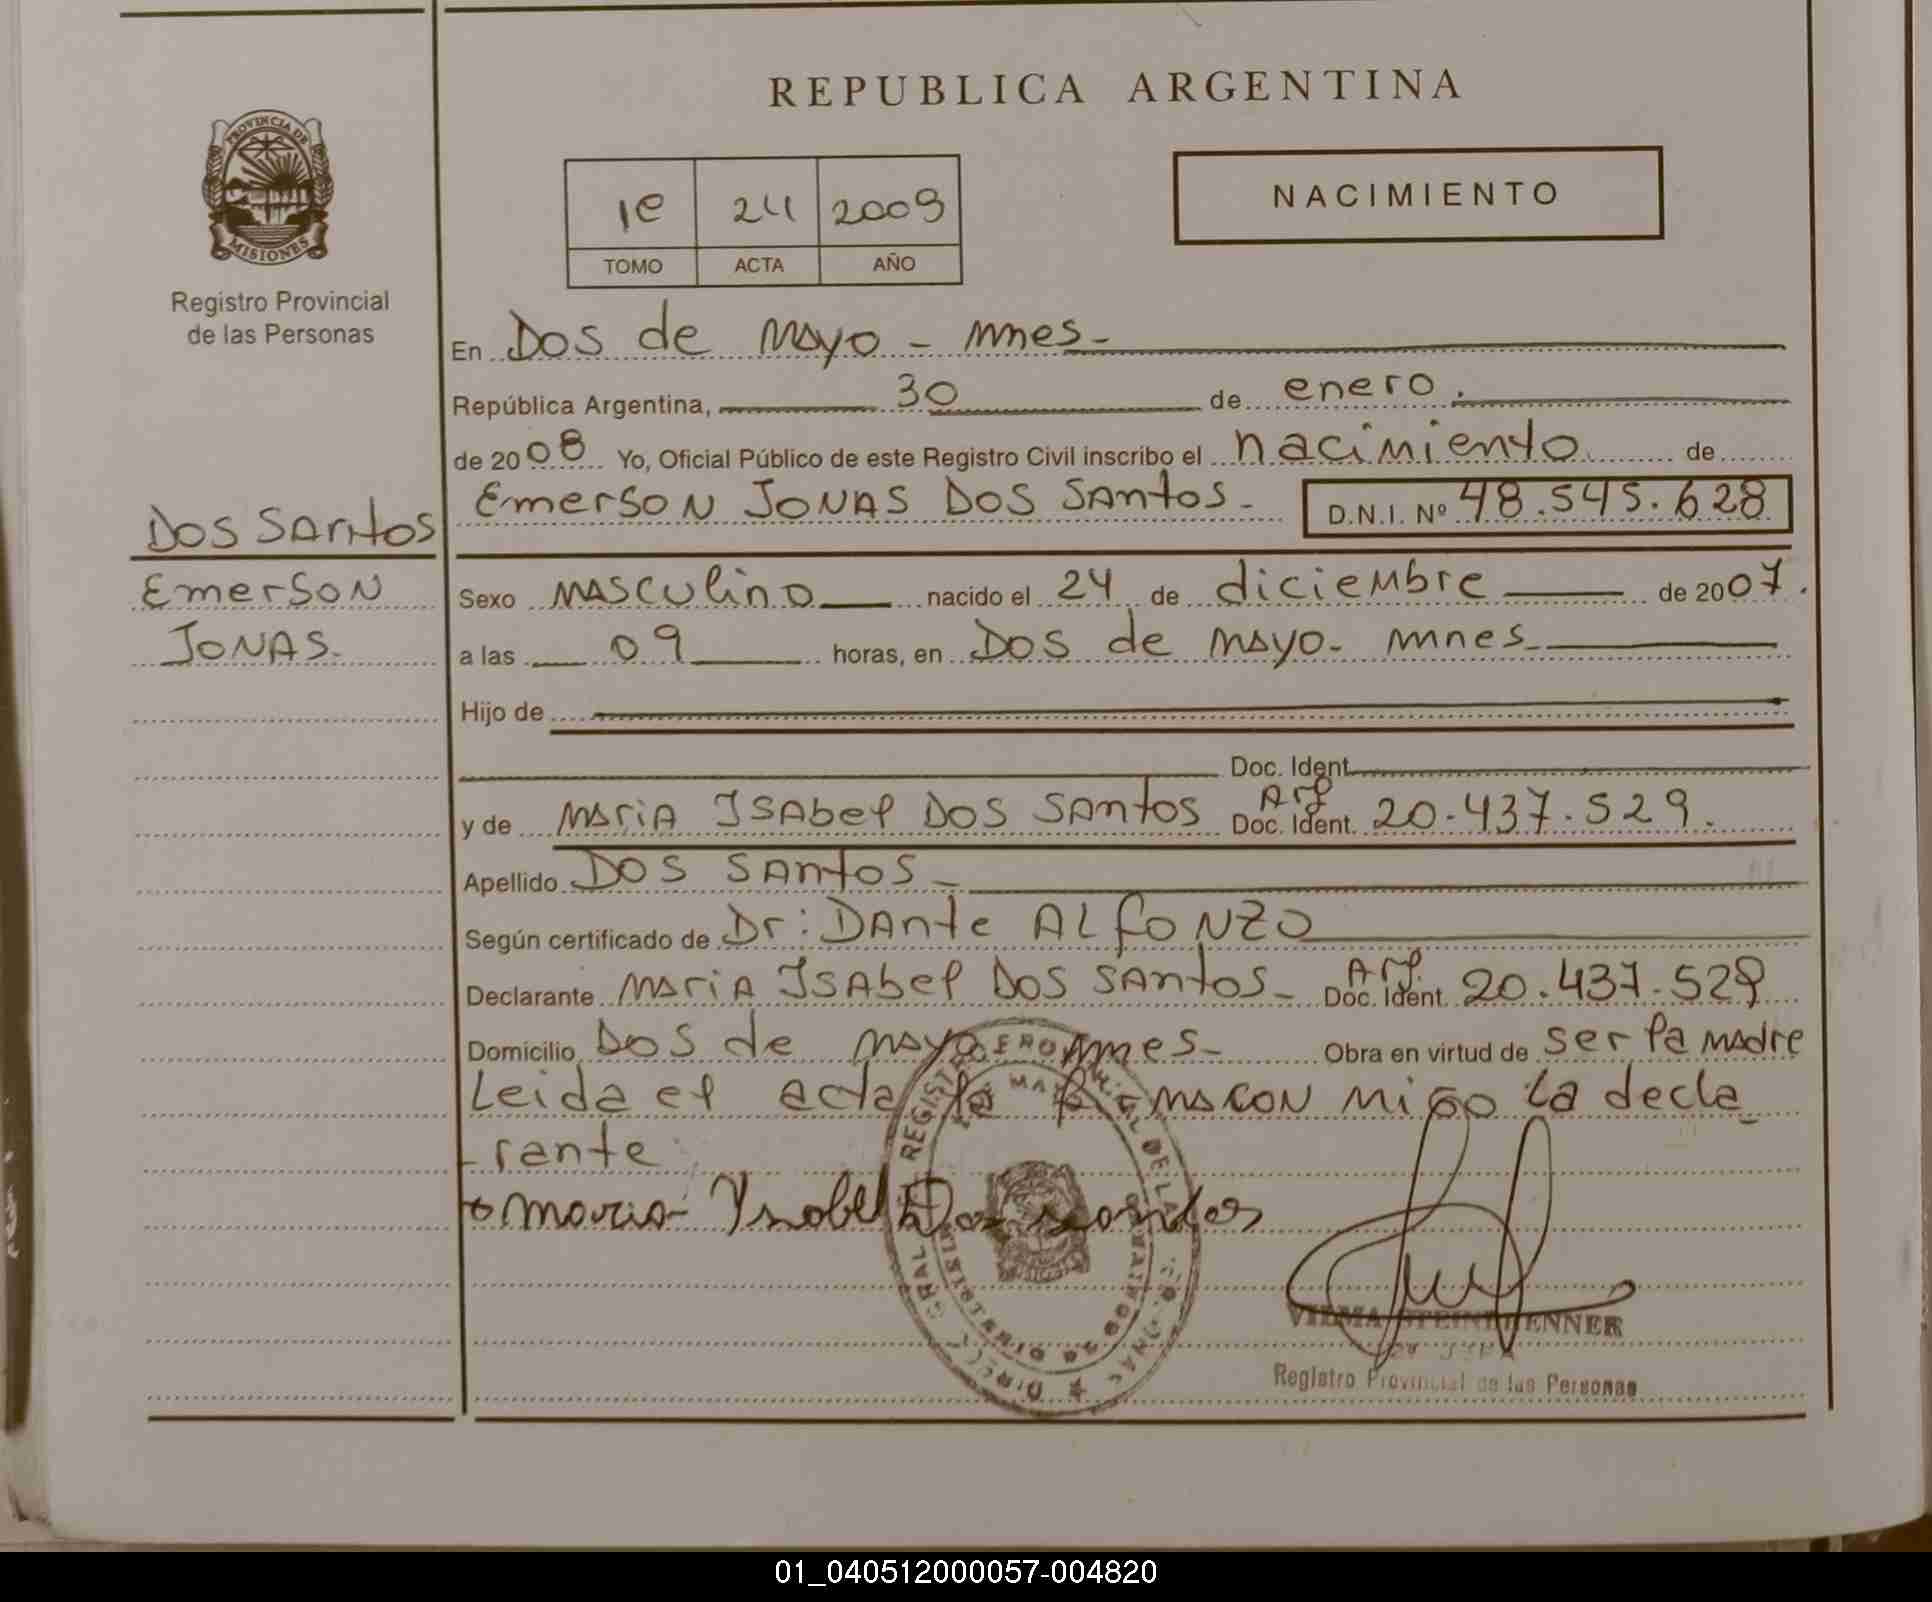 REPUBLICA ARGENTINA
PROVINCIA DE
MISIONES
Registro Provincial
de las Personas
NACIMIENTO
1e 24 2009
TOMO ACTA AÑO
En Dos de Mayo - mnes-
República Argentina, 30 de enero.
de 2008 Yo, Oficial Público de este Registro Civil inscribo el nacimiento de
Emerson Jonas Dos Santos- D.N.I. Nº 48.545.628
Dos Santos
Emerson
Jonas-
Sexo Masculino nacido el 24 de diciembre de 2007.
a las 09 horas, en Dos de Mayo- mnes-
Hijo de
Doc. Ident.
y de Maria Isabel Dos Santos Arg Doc. Ident. 20.437.529.
Apellido Dos Santos-
Según certificado de Dr: Dante Alfonzo
Declarante Maria Isabel Dos Santos- Arg. Doc. Ident. 20.437.529
Domicilio Dos de Mayo mnes- Obra en virtud de ser la madre
Leida el acta la firma con migo la decla
-rante
Maria Ysabel Dos santos
VILMA
Registro Provincial de las Personas
01_040512000057-004820